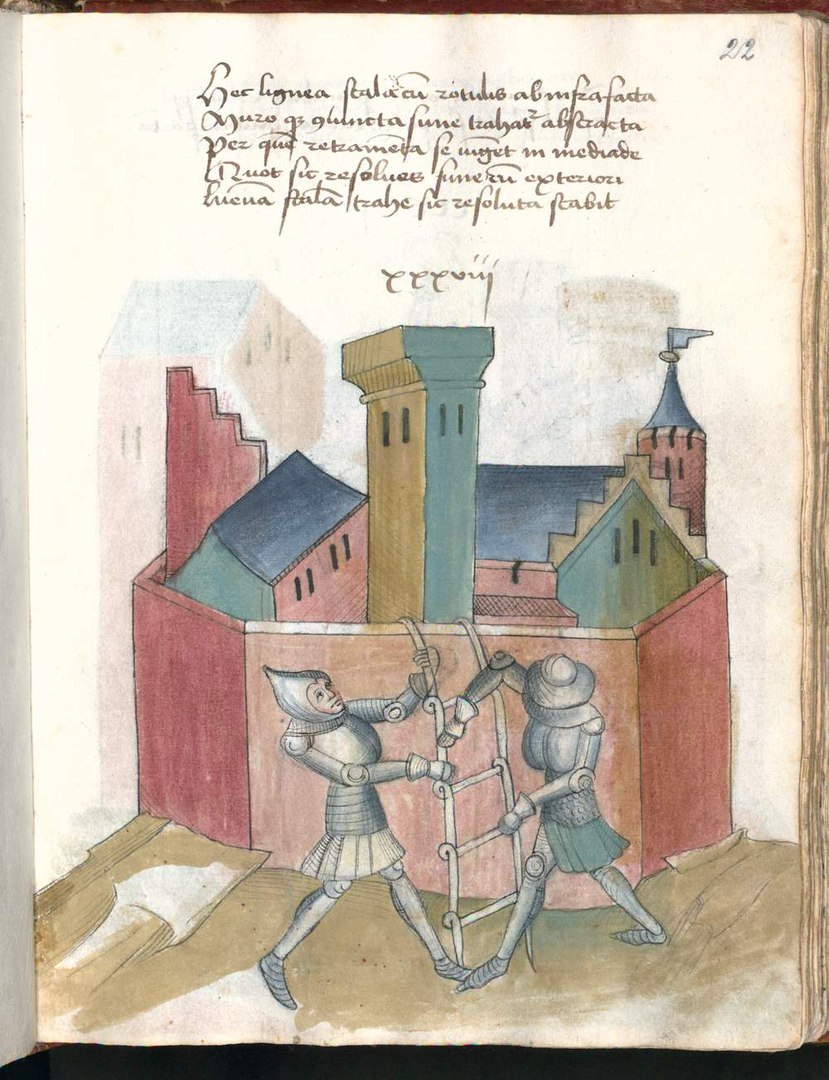 212
Hec lignea scala cū rotulis ab infra facta
Muro qʒ ꝯiuncta fune trahat᷑ abstracta
Per quē retramēta se iūget in mediade
Quot sic resolues fune cū exteriori
scalā trahe sic resoluta scabit
xxxviij